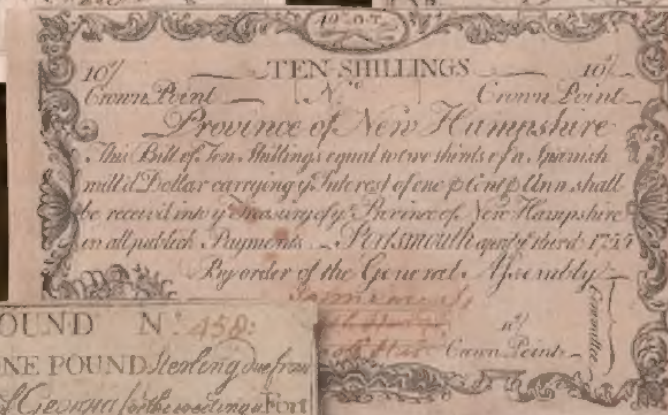 10/ TEN SHILLINGS 10/
Crown Point No Crown Point
Province of New Hampshire
This Bill of Ten Shillings equal to two thirds of a Spanish
mill'd Dollar carrying ye Interest of one p Cent p Ann shall
be receiv'd into ye Treasury of ye Province of New Hampshire
in all publick Payments Portsmouth third
By order of the General Assembly
Committee
Crown Point
OUND No 458:
NE POUND Sterling due from
Georgia for the Fort